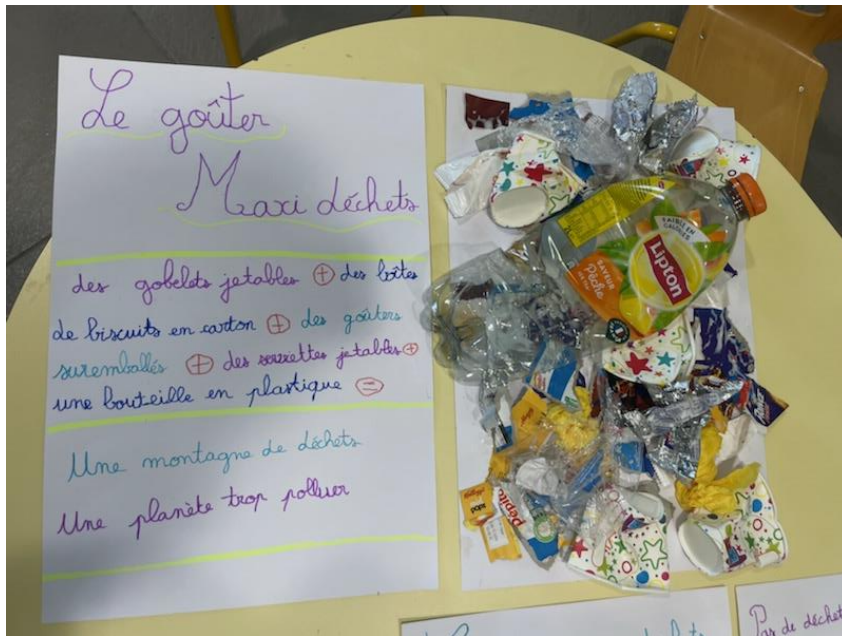 Le goûter
Maxi déchets
des gobelets jetables + des boîtes
de biscuits en carton + des goûters
suremballés + des serviettes jetables +
une bouteille en plastique =
Une montagne de déchets
Une planète trop polluer
FAIBLE EN
CALORIES
Lipton
SAVEUR
Pêche
Pepito
Pas de déchet